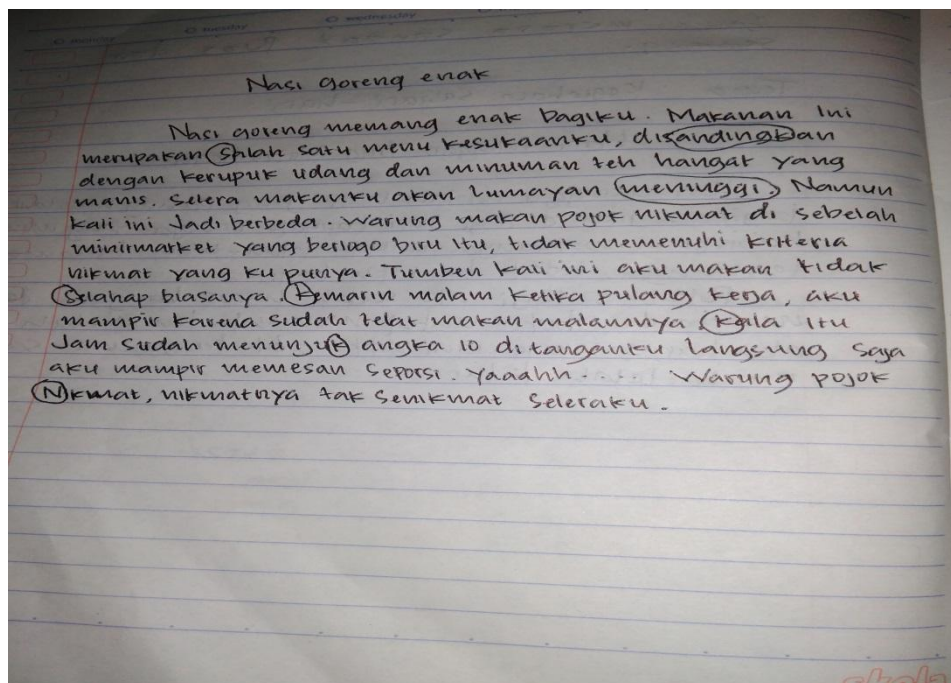 monday
tuesday
wednesday
Nasi goreng enak
Nasi goreng memang enak bagiku. Makanan ini
merupakan salah satu menu kesukaanku, disandingkan
dengan kerupuk udang dan minuman teh hangat yang
manis. Selera makanku akan lumayan meninggi, Namun
kali ini Jadi berbeda. Warung makan pojok nikmat di sebelah
minirmarket yang berlogo biru itu, tidak memenuhi kriteria
nikmat yang ku punya. Tumben kali ini aku makan tidak
Selahap biasanya. Kemarin malam ketika pulang kerja, aku
mampir karena sudah telat makan malamnya. Kala itu
Jam sudah menunjuk angka 10 di tanganku langsung saja
aku mampir memesan seporsi. Yaaahh.... Warung pojok
Nikmat, nikmatnya tak senikmat seleraku.